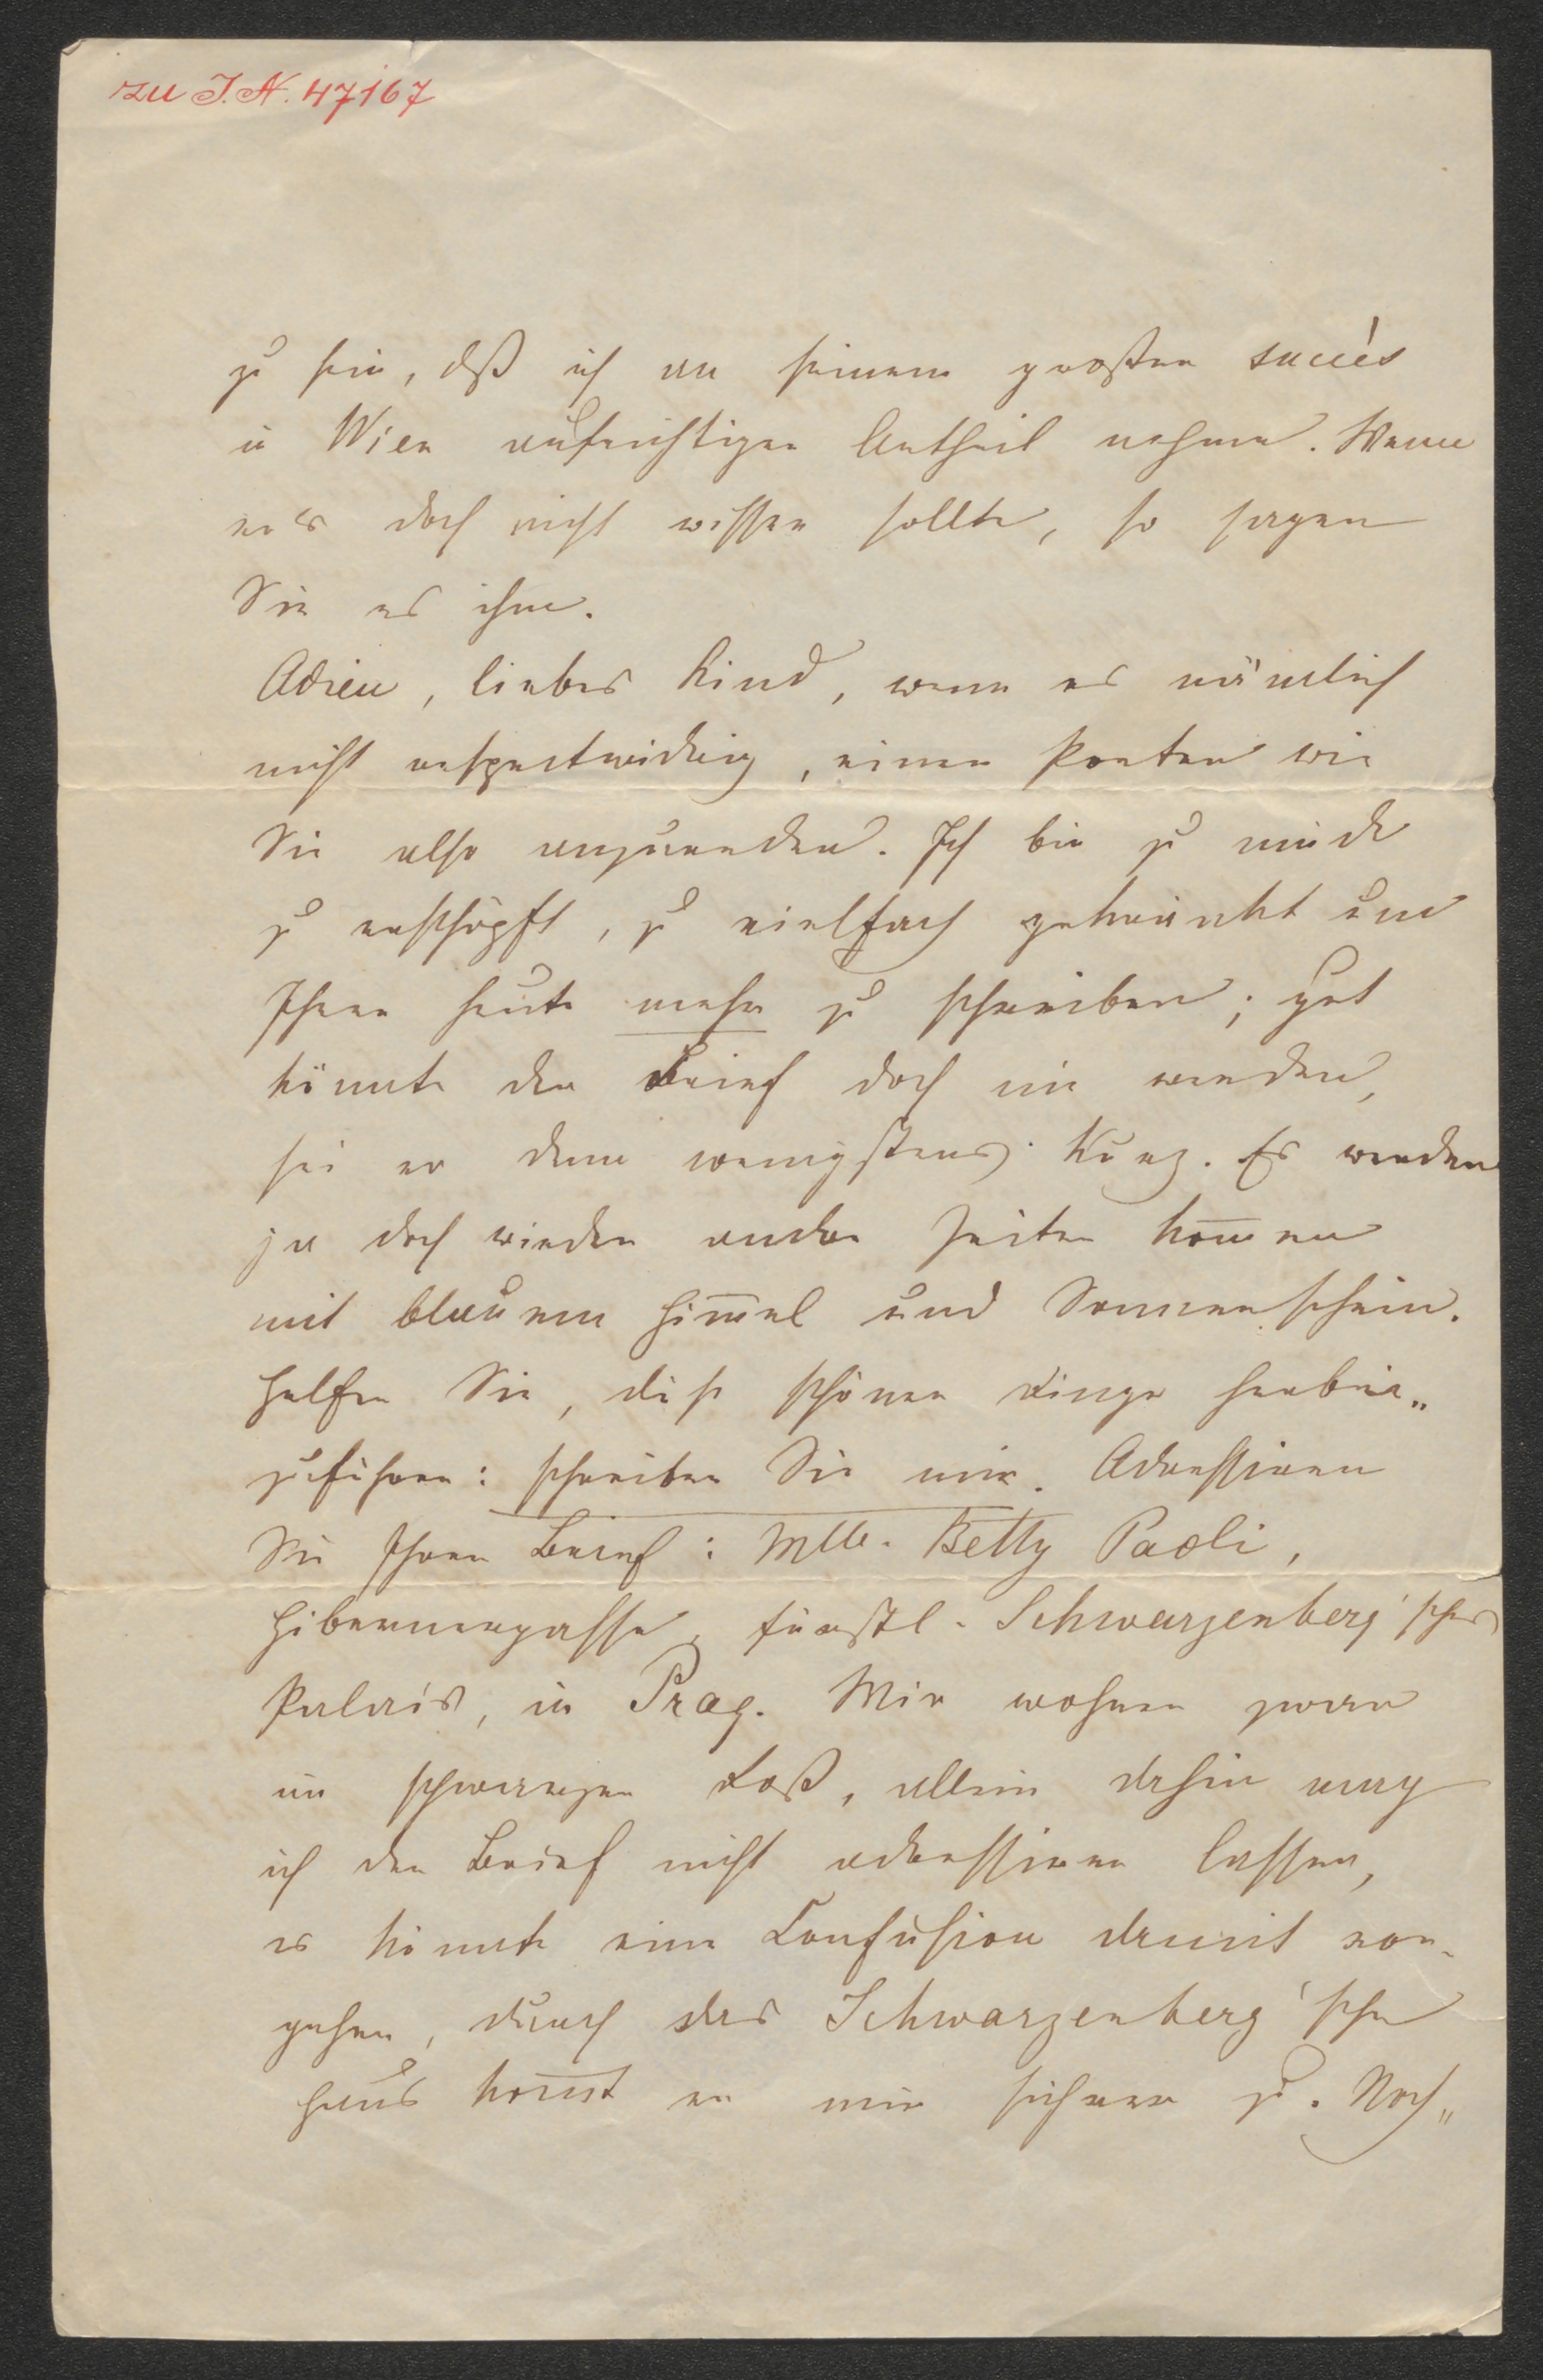 zu I.N. 47167
zu sein, daß ich an seinem großen succès
in Wien aufrichtigen Antheil nehme. Wenn
er's doch nicht wissen sollte, so sagen
Sie es ihm.
Adieu, liebes Kind, wenn es nämlich
nicht respectwidrig, einen Poeten wie
Sie also anzureden. Ich bin zu müde
zu erschöpft, zu vielfach gekränkt um
Ihnen heute mehr zu schreiben; gut
könnte der Brief doch nie werden,
sei er denn wenigstens kurz. Es werden
ja doch wieder andre Zeiten kom̅en
mit blauem Him̅el und Sonnenschein.
Helfen Sie, diese schönen Dinge herbei„
zuführen: schreiben Sie mir. Adressiren
Sie Ihren Brief: Mlle. Betty Paoli,
Hibernergasse, fürstl. Schwarzenberg'sches
Palais, in Prag. Wir wohnen zwar
im schwarzen Roß, allein dahin mag
ich den Brief nicht adressiren lassen,
es könnte eine Confusion damit vor-
gehen, durch das Schwarzenberg'sche
Haus kom̅t er mir sicherer zu. Noch„